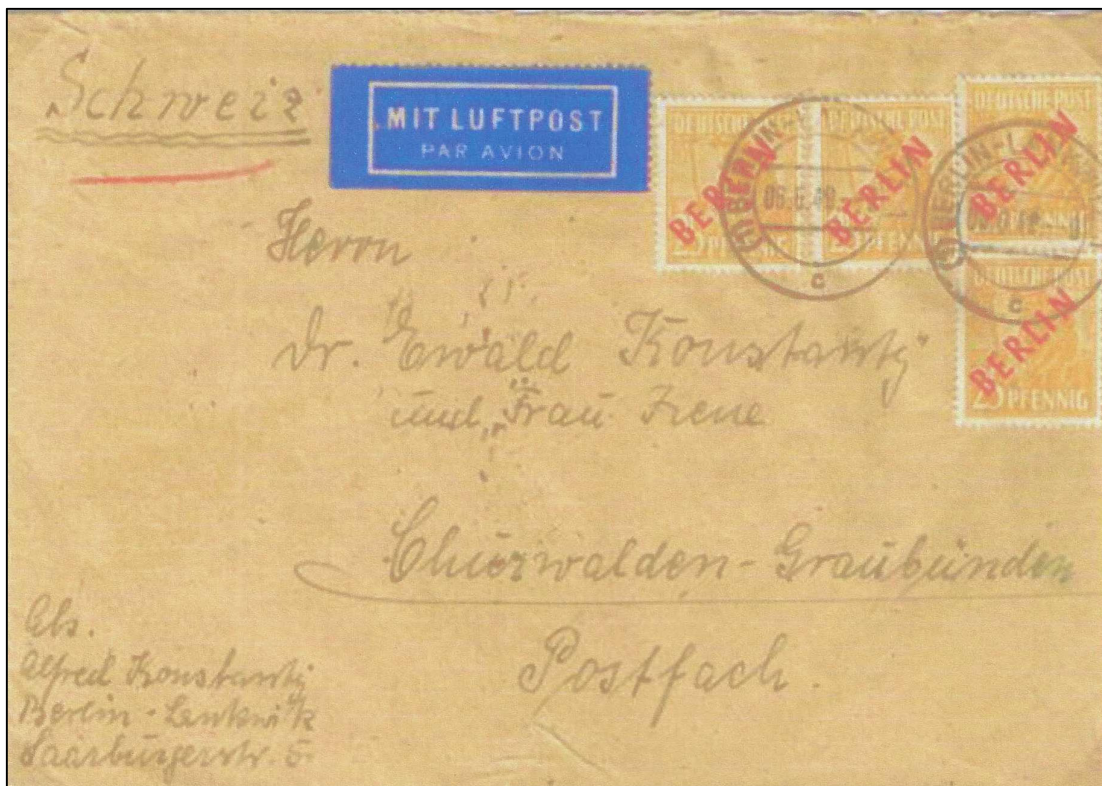 Schweiz
MIT LUFTPOST
PAR AVION
DEUTSCHE POST
BERLIN
25 PFENNIG
DEUTSCHE POST
BERLIN
PFENNIG
DEUTSCHE POST
BERLIN
DEUTSCHE POST
BERLIN
25 PFENNIG
BERLIN-
06.6.49
c
BERLIN-L
c
Herrn
Dr. Ewald Konstantz
und Frau Irene
Churwalden-Graubünden
Postfach.
Abs.
Alfred Konstantz
Berlin-Lankwitz
Saarburgerstr. 5.